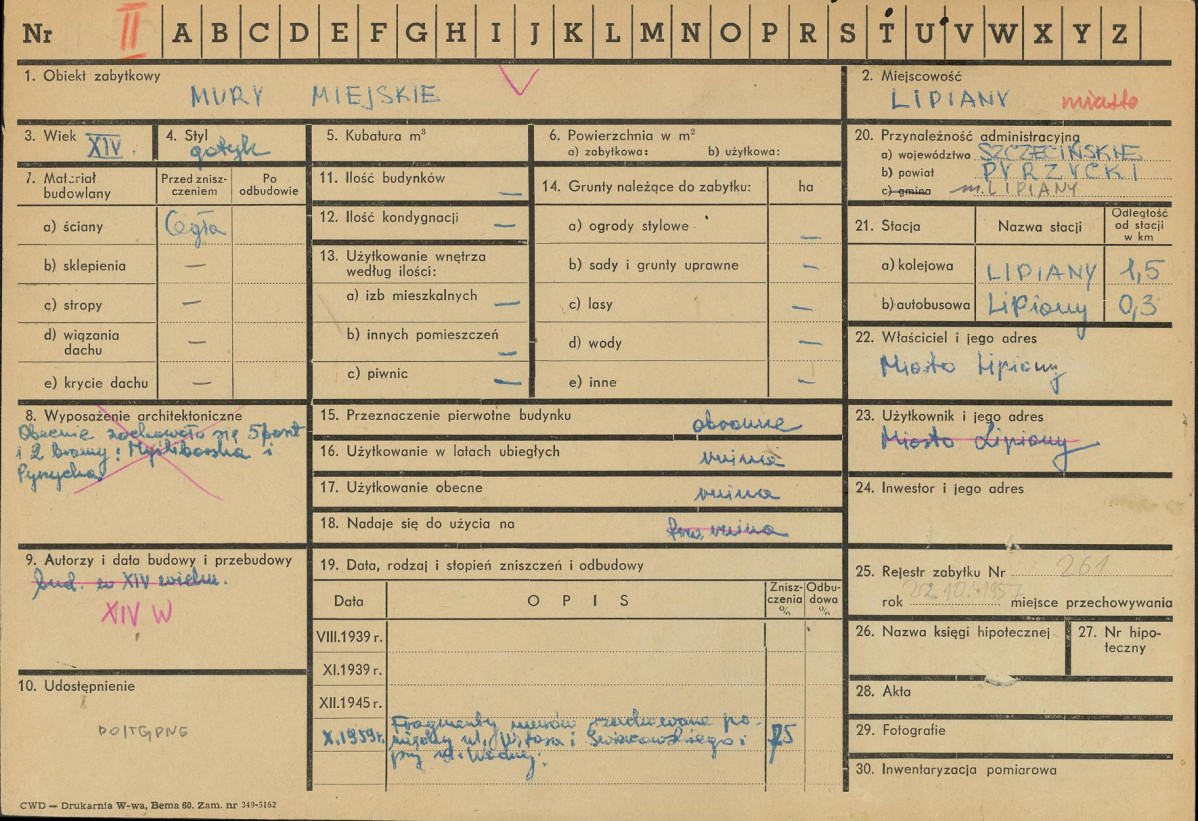 Nr II A B C D E F G H I J K L M N O P R S T U V W X Y Z
1. Obiekt zabytkowy
MURY MIEJSKIE
2. Miejscowość
LIPIANY miasto
3. Wiek XIV.
4. Styl gotyk
5. Kubatura m³
6. Powierzchnia w m²
a) zabytkowa: b) użytkowa:
20. Przynależność administracyjna
a) województwo SZCZECIŃSKIE
b) powiat PYRZYCKI
c) gmina m. LIPIANY
7. Materiał budowlany
Przed zniszczeniem
Po odbudowie
a) ściany Cegła
b) sklepienia —
c) stropy —
d) wiązania dachu —
e) krycie dachu —
11. Ilość budynków —
12. Ilość kondygnacji —
13. Użytkowanie wnętrza
według ilości:
a) izb mieszkalnych —
b) innych pomieszczeń —
c) piwnic —
14. Grunty należące do zabytku: ha
a) ogrody stylowe —
b) sady i grunty uprawne —
c) lasy —
d) wody —
e) inne —
21. Stacja
Nazwa stacji
Odległość od stacji w km
a) kolejowa LIPIANY 1,5
b) autobusowa Lipiany 0,3
22. Właściciel i jego adres
Miasto Lipiany
8. Wyposażenie architektoniczne
Obecnie zachowało się 5 baszt
i 2 bramy: Myśliborska i
Pyrzycka
15. Przeznaczenie pierwotne budynku obronne
16. Użytkowanie w latach ubiegłych ruina
17. Użytkowanie obecne ruina
18. Nadaje się do użycia na ruina
23. Użytkownik i jego adres
Miasto Lipiany
24. Inwestor i jego adres
9. Autorzy i data budowy i przebudowy
bud. w XIV wieku.
XIV W
10. Udostępnienie
DOSTĘPNE
19. Data, rodzaj i stopień zniszczeń i odbudowy
Data
O P I S
Zniszczenia %
Odbudowa %
VIII.1939 r.
XI.1939 r.
XII.1945 r.
X.1959 r.
Fragmenty murów zachowane po-
między ul. i Świerczewskiego i
przy ul. Wodnej.
75
25. Rejestr zabytku Nr 261
rok 22.10.1957 miejsce przechowywania
26. Nazwa księgi hipotecznej
27. Nr hipoteczny
28. Akta
29. Fotografie
30. Inwentaryzacja pomiarowa
CWD — Drukarnia W-wa, Bema 60. Zam. nr 349-5162